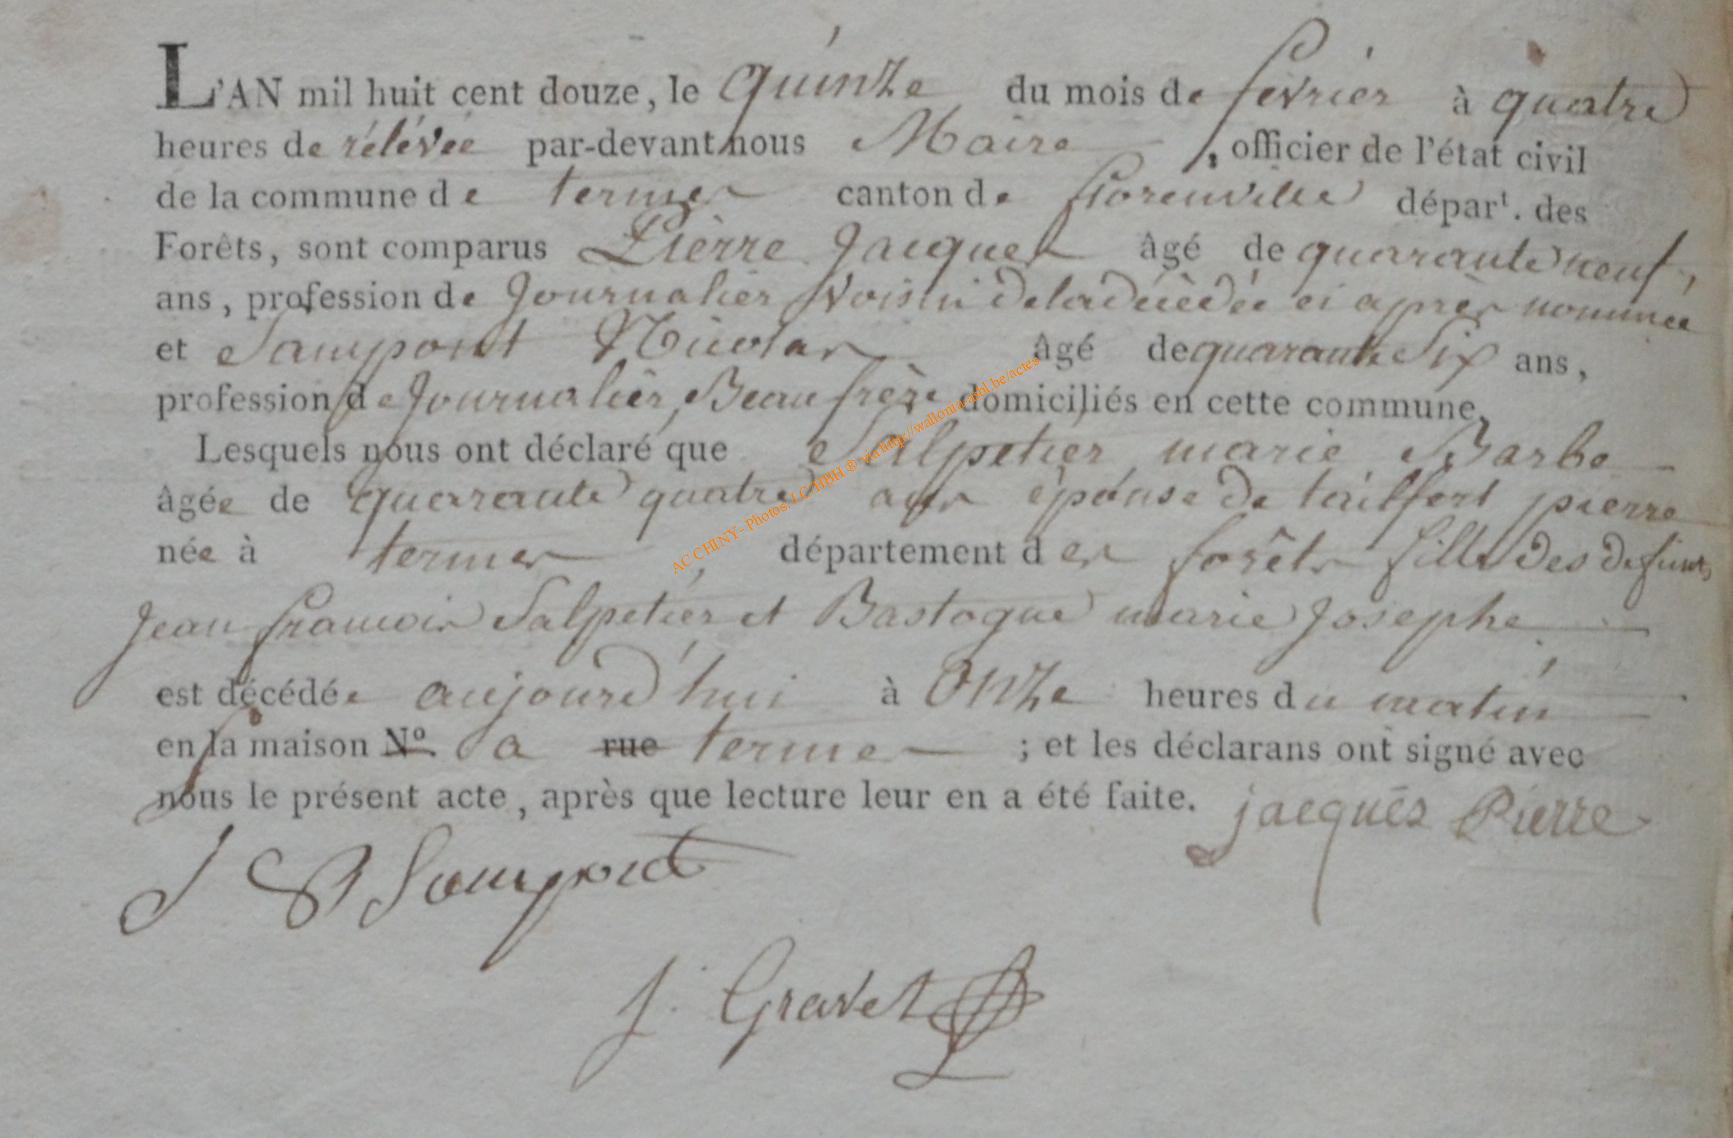 L'AN mil huit cent douze, le quinze du mois de fevrier à quatre
heures de rélévée par-devant nous Maire, officier de l'état civil
de la commune de termes canton de florenville départ. des
Forêts, sont comparus Pierre Jacques âgé de quarante neuf,
ans, profession de Journalier Voisin de la décèdée ci après nommée
et Sampont Nicolas âgé de quarante Six ans,
profession de Journalier, Beaufrère domiciliés en cette commune,
Lesquels nous ont déclaré que Salpetier marie Barbe
âgée de quarante quatre ans épouse de tailfert pierre
née à termes, département des forêts fille des defunts
Jean francois Salpetier et Bastogne marie Josephe
est décédée aujourd'hui à Onze heures du matin
en la maison N°. a rue termes ; et les déclarans ont signé avec
nous le présent acte, après que lecture leur en a été faite. jacques Pierre
Sampont
J. Gravet
AC CHINY- Photos. LCHBH ® via http://wallonia-asbl.be/actes